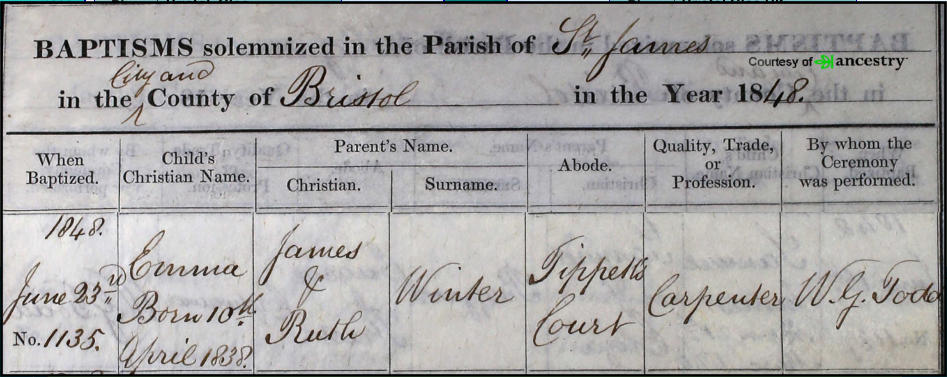 BAPTISMS solemnized in the Parish of St,, James
Courtesy of ancestry
City and
in the County of Bristol in the Year 1848.
When Baptized.
Child's Christian Name.
Parent's Name.
Christian.
Surname.
Abode.
Quality, Trade, or Profession.
By whom the Ceremony was performed.
1848.
June 23rd
No. 1135.
Emma
Born 10th
April 1838.
James
&
Ruth
Winter
Tippetts
Court
Carpenter
W. G. Todd